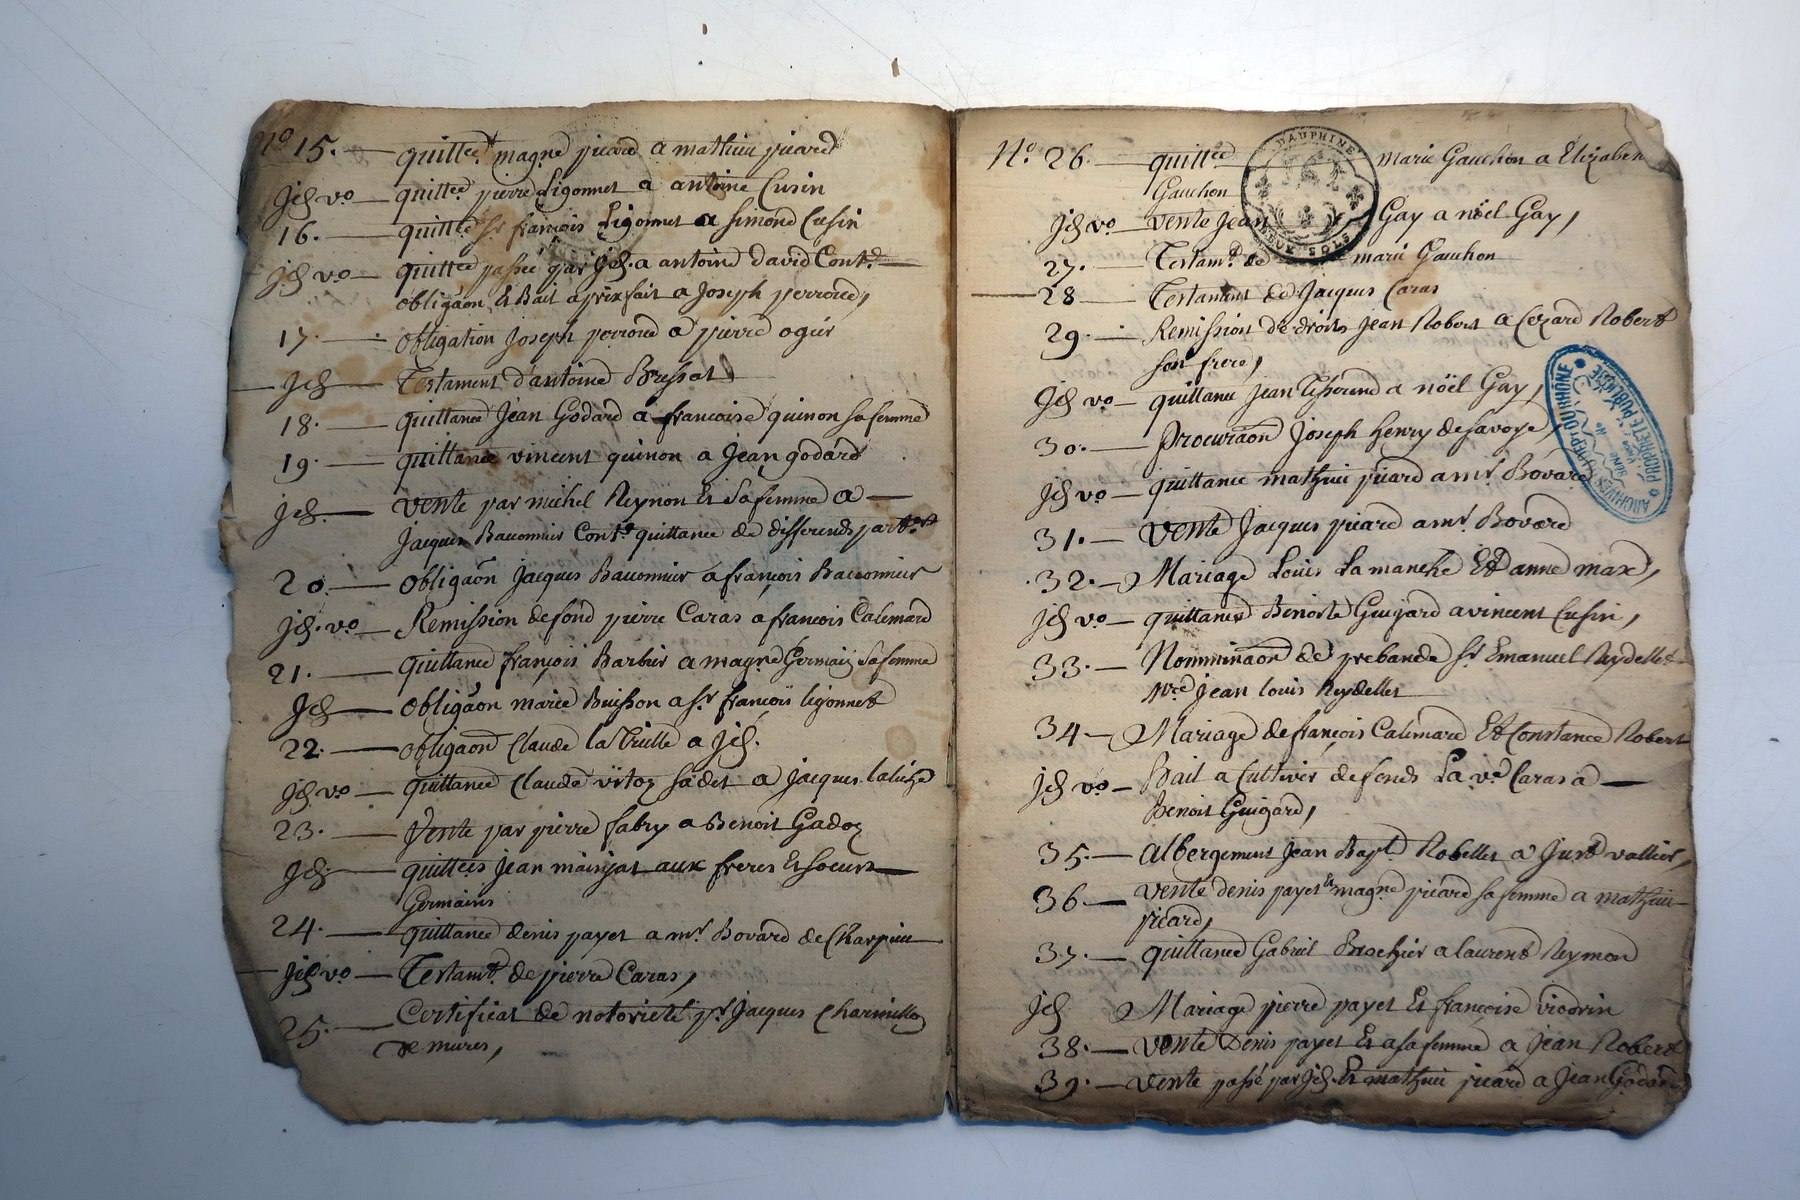 No 15. quittce magne picard a mathieu picard
Jd vo quittce pierre Ligonnet a antoine Cusin
16. quittce Sr françois Ligonnet a Simond Cusin
Jd vo quittce passée par Jd. a antoine david Contt
obligaon Et Bail a prix fait a Joseph perroud,
17. obligation Joseph perroud a pierre ogier
Jd Testament d'antoine Bressat
18. quittance Jean Godard a francoise quinon sa femme
19. quittance vincent quinon a Jean godard
Jd. vente par michel Reynon Et sa femme a
Jacques Bauonnier Contt quittance de differends par
20. obligaon Jacques Bauonnier a françois Bauonnier
Jd. vo Remission de fond pierre Caras a francois Calemard
21. quittance françois Barbier a magne Germain sa femme
Jd obligaon marie Buisson a Sr françois ligonnet
22. obligaon Claude la a Jd.
Jd vo quittance Claude a Jacques
23. Vente par pierre fabry a Benoit Gadoz
Jd quittces Jean aux freres Et soeurs
Germains
24. quittance denis payet a mr. Bovard de Charpieu
Jd vo Testamt. de pierre Caras,
25. Certificat de notorieté pr Jacques
de mures,
No. 26. quittce marie Gauchon a Elizabeth
Gauchon
Jd vo vente Jean Gay a noël Gay,
27. Testamt. de marie Gauchon
28 Testament de Jacques Caras
29. Remission de droits Jean Robert a Cezard Robert
son frere,
Jd vo quittance Jean Tisserand a noël Gay,
30. Procuraon Joseph henry de savoye,
Jd vo quittance mathieu picard a mr. Bovard
31. Vente Jacques picard a mr. Bovard
32. Mariage Louis La manche Et anne max,
Jd vo quittance Benoite Guigard a vincent Cusin,
33. Nomminaon de prebande Sr Emanuel Reydellet
Mre Jean louis Reydellet
34 Mariage de françois Calemard Et Constance Robert
Jd vo Bail a Cultiver de fonds La ve Caras a
Benoit Guigard,
35. albergement Jean Bapt. Robellet a Just vallier,
36 vente denis payet Et magne picard sa femme a mathieu
picard,
37. quittance Gabriel Brochier a laurent Reymond
Jd Mariage pierre payet Et françoise
38. vente Denis payet Et a sa femme a Jean Robert
39. vente passé par Jd. Et mathieu picard a Jean Godard
DAUPHINE
DEUX SOLS
ARCHIVES DU DEP. DU RHÔNE
PROPRIÉTÉ PUBLIQUE